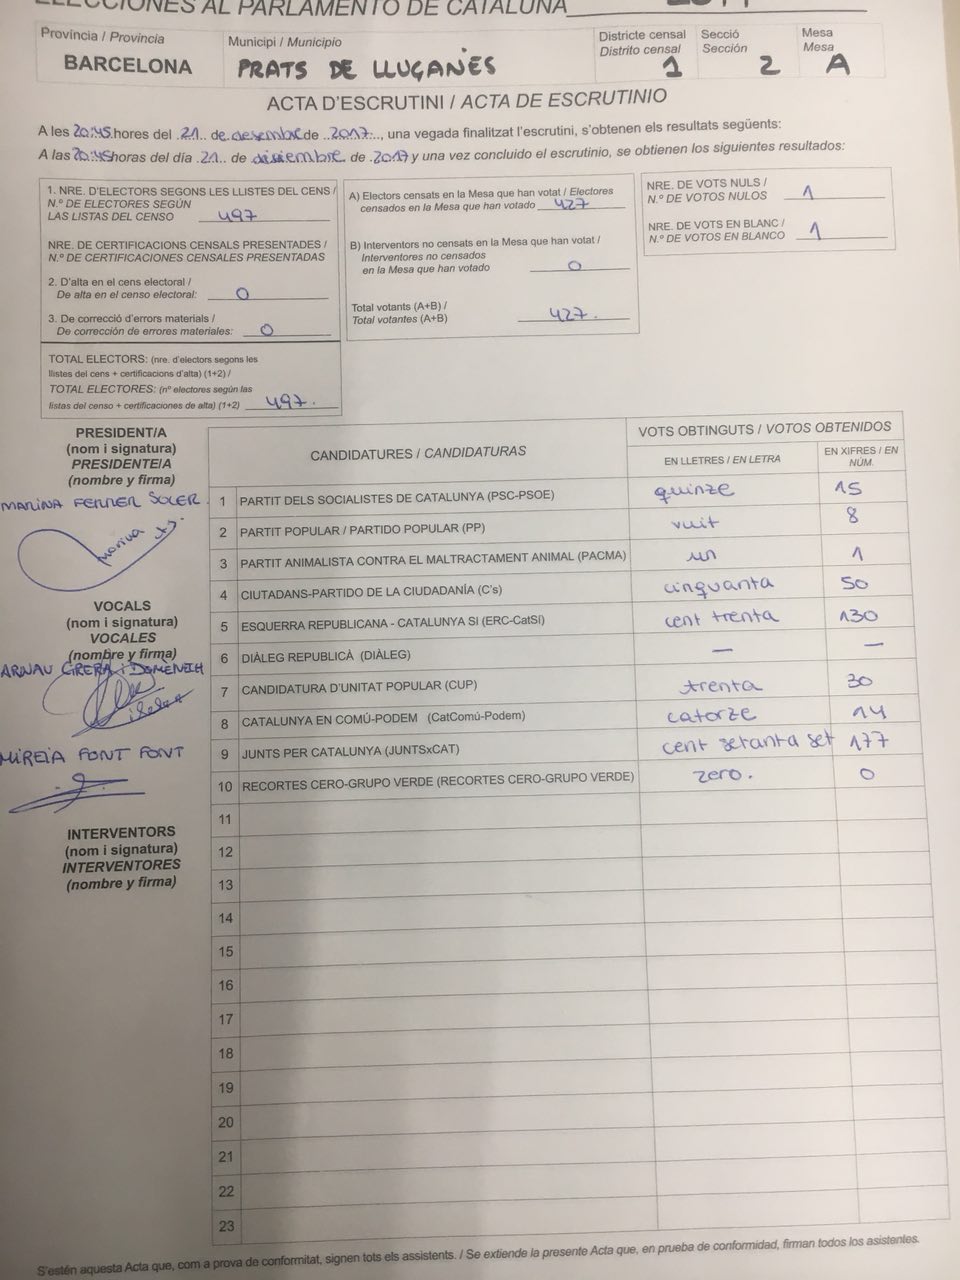 ELECCIONES AL PARLAMENTO DE CATALUÑA
Província / Provincia
BARCELONA
Municipi / Municipio
PRATS DE LLUÇANÈS
Districte censal
Distrito censal
1
Secció
Sección
2
Mesa
Mesa
A
ACTA D'ESCRUTINI / ACTA DE ESCRUTINIO
A les 20:45 hores del 21 de desembre de 2017, una vegada finalitzat l'escrutini, s'obtenen els resultats següents:
A las 20:45 horas del día 21 de diciembre de 2017 y una vez concluido el escrutinio, se obtienen los siguientes resultados:
1. NRE. D'ELECTORS SEGONS LES LLISTES DEL CENS /
N.º DE ELECTORES SEGÚN
LAS LISTAS DEL CENSO 497
NRE. DE CERTIFICACIONS CENSALS PRESENTADES /
N.º DE CERTIFICACIONES CENSALES PRESENTADAS
2. D'alta en el cens electoral /
De alta en el censo electoral: 0
3. De correcció d'errors materials /
De corrección de errores materiales: 0
TOTAL ELECTORS: (nre. d'electors segons les
llistes del cens + certificacions d'alta) (1+2) /
TOTAL ELECTORES: (nº electores según las
listas del censo + certificaciones de alta) (1+2) 497.
A) Electors censats en la Mesa que han votat / Electores
censados en la Mesa que han votado 427
B) Interventors no censats en la Mesa que han votat /
Interventores no censados
en la Mesa que han votado 0
Total votants (A+B) /
Total votantes (A+B) 427.
NRE. DE VOTS NULS /
N.º DE VOTOS NULOS 1
NRE. DE VOTS EN BLANC /
N.º DE VOTOS EN BLANCO 1
PRESIDENT/A
(nom i signatura)
PRESIDENTE/A
(nombre y firma)
MARINA FERRER SOLER.
VOCALS
(nom i signatura)
VOCALES
(nombre y firma)
ARNAU CIRERA i DOMÈNECH
MIREIA FONT FONT
INTERVENTORS
(nom i signatura)
INTERVENTORES
(nombre y firma)
CANDIDATURES / CANDIDATURAS
VOTS OBTINGUTS / VOTOS OBTENIDOS
EN LLETRES / EN LETRA
EN XIFRES / EN NÚM.
1 PARTIT DELS SOCIALISTES DE CATALUNYA (PSC-PSOE) quinze 15
2 PARTIT POPULAR / PARTIDO POPULAR (PP) vuit 8
3 PARTIT ANIMALISTA CONTRA EL MALTRACTAMENT ANIMAL (PACMA) un 1
4 CIUTADANS-PARTIDO DE LA CIUDADANÍA (C's) cinquanta 50
5 ESQUERRA REPUBLICANA - CATALUNYA SI (ERC-CatSI) cent trenta 130
6 DIÀLEG REPUBLICÀ (DIÀLEG) — —
7 CANDIDATURA D'UNITAT POPULAR (CUP) trenta 30
8 CATALUNYA EN COMÚ-PODEM (CatComú-Podem) catorze 14
9 JUNTS PER CATALUNYA (JUNTSxCAT) cent setanta set 177
10 RECORTES CERO-GRUPO VERDE (RECORTES CERO-GRUPO VERDE) zero. 0
11
12
13
14
15
16
17
18
19
20
21
22
23
S'estén aquesta Acta que, com a prova de conformitat, signen tots els assistents. / Se extiende la presente Acta que, en prueba de conformidad, firman todos los asistentes.